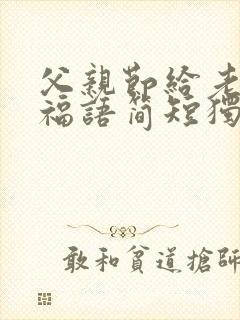 父親節給老
福語簡短獨
敢和貧道搶師